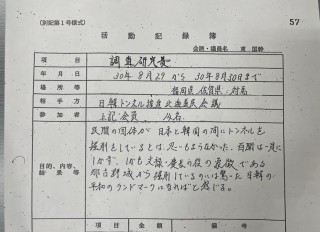 (別記第1号様式)
57
活動記録簿
会派・議員名 東 国幹
項目 調査研究費
年月日 30年8月29から30年8月30日まで
場所等 福岡県 佐賀県 対馬
相手方 日韓トンネル推進北海道民会議
参加者 上記会員
目的、内容、結果等
民間の団体が日本と韓国の間にトンネルを
掘削をしているとは思いもよらなかった。両国は一見に
しかず、
から掘削しているのには驚いた 日韓の
平和のランドマークになればと感じる。
項目 金額 備考